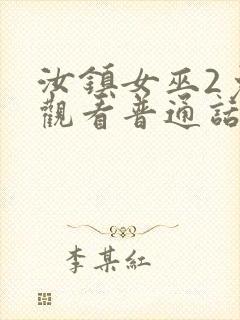 汝鎮女巫2
觀看普通話
李某紅